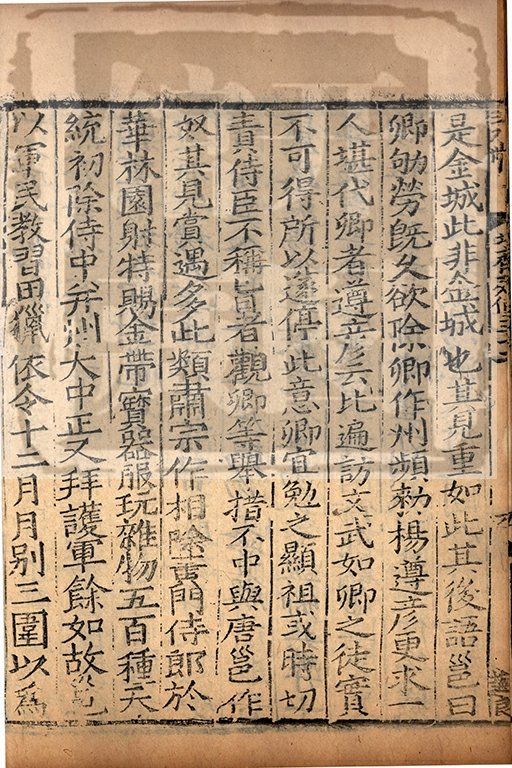 是金城此非金城也其見重如此其後語邕曰
卿劬勞旣久欲除卿作州頻勑楊遵彦更求一
人堪代卿者遵彦云比遍訪文武如卿之徒實
不可得所以遂停此意卿宜勉之顯祖或時切
責侍臣不稱旨者觀卿等舉措不中與唐邕作
奴其見賞遇多此類肅宗作相除黄門侍郎於
華林園射特賜金帶寶器服玩雜物五百種天
統初除侍中并州大中正又拜護軍餘如故邕
以軍民教習田獵依令十二月月別三圍以爲